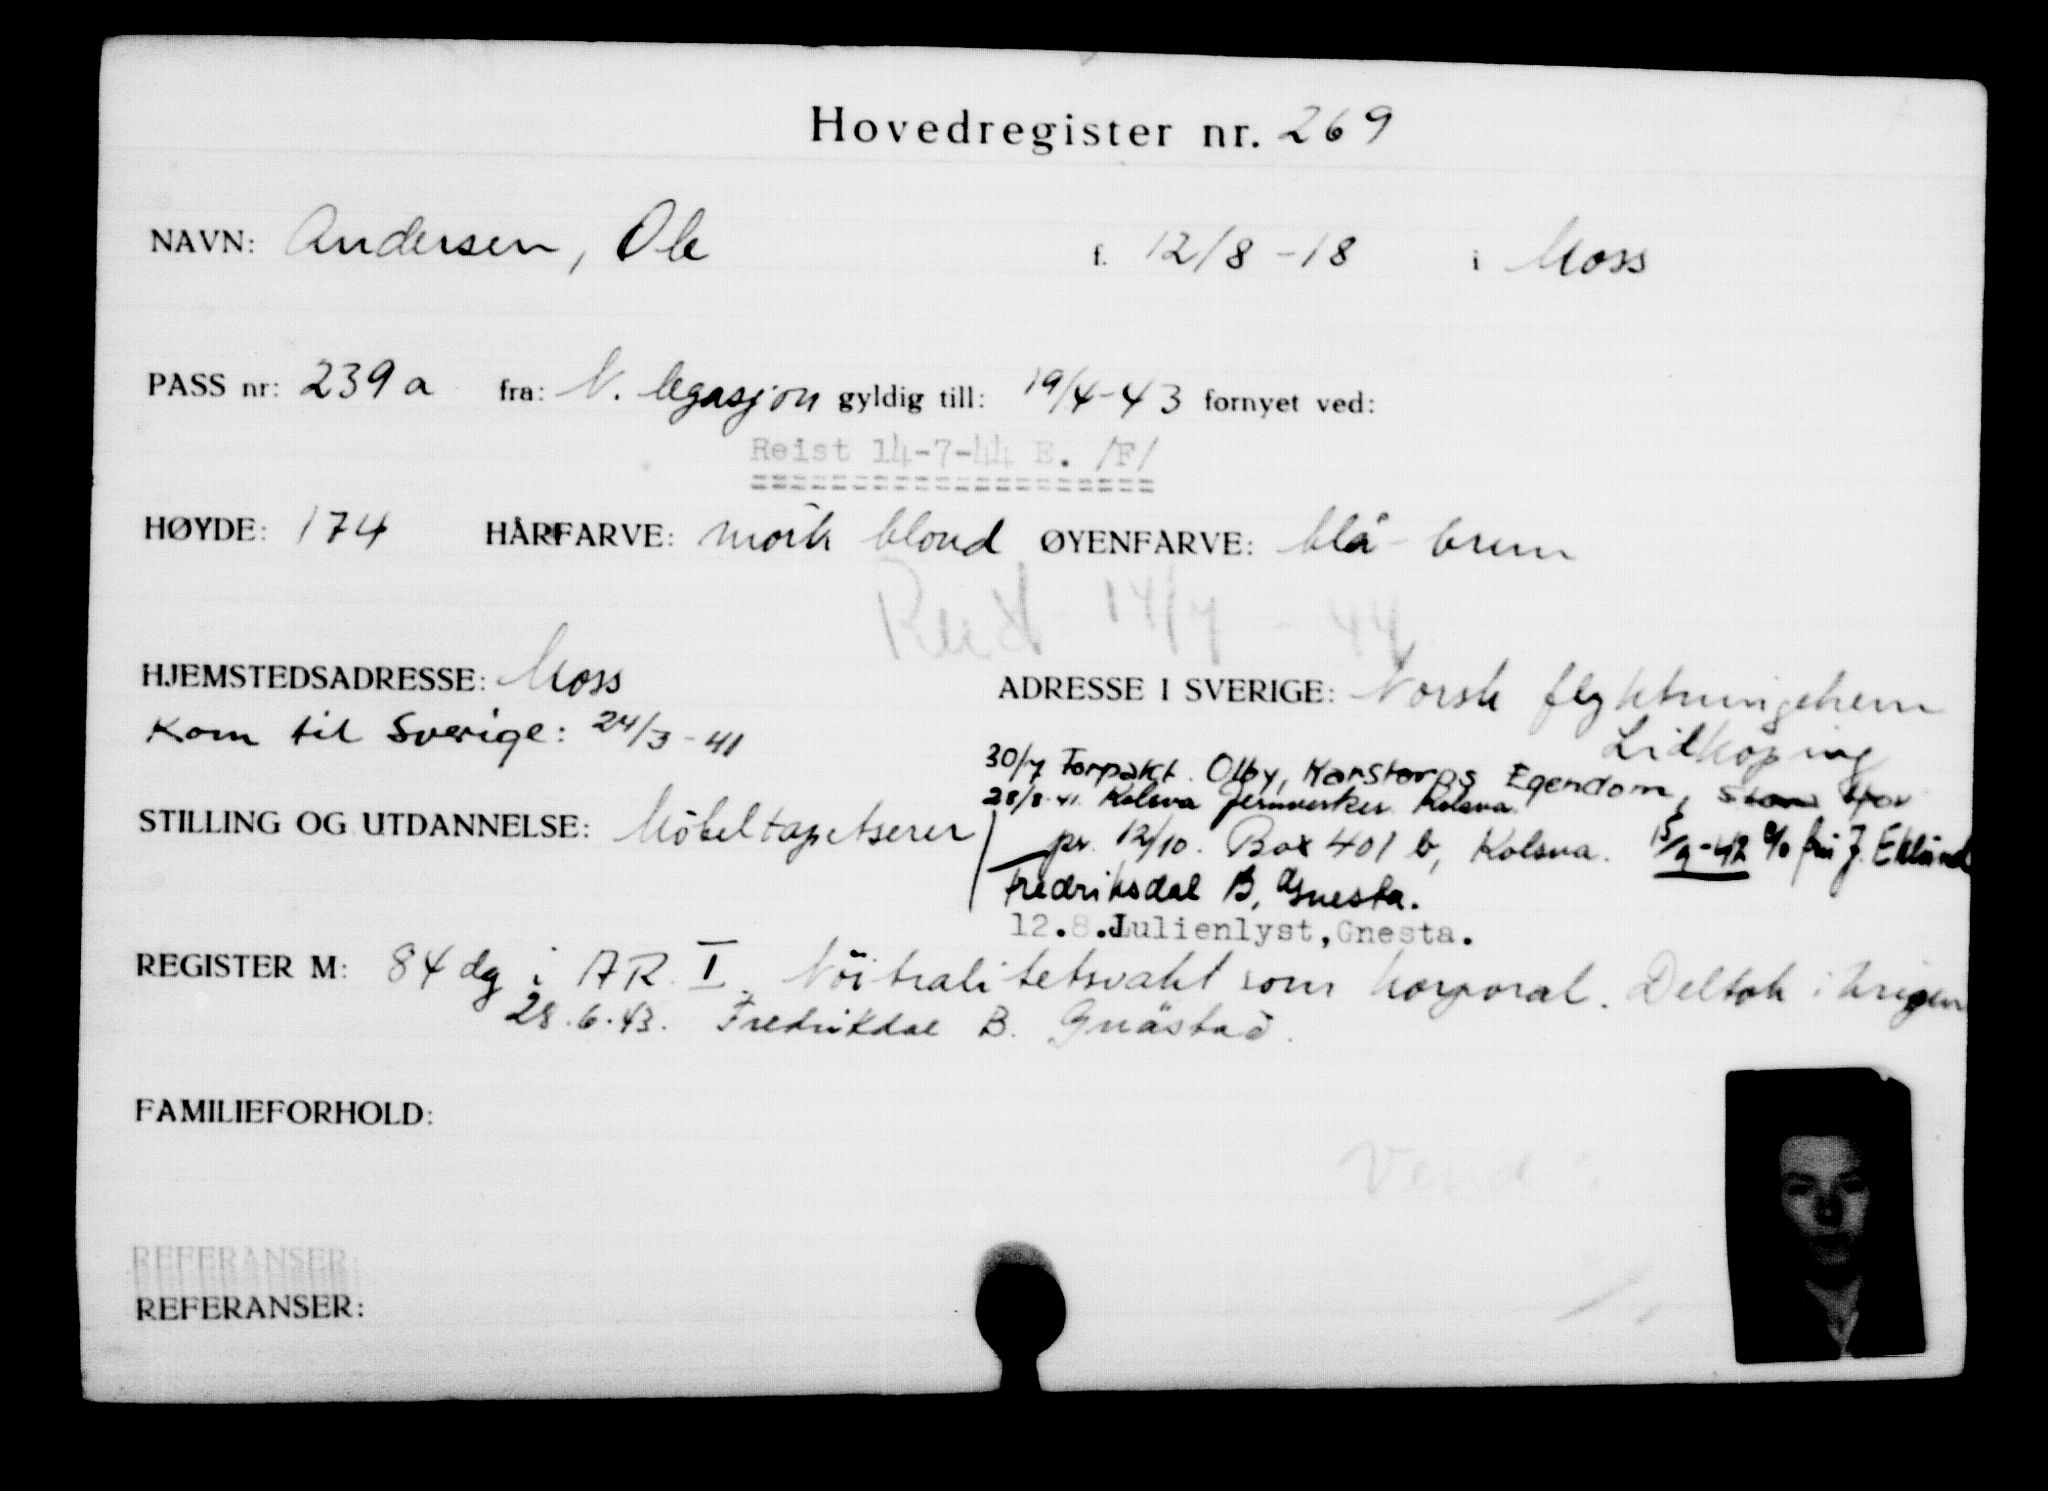 Hovedregister nr. 269
NAVN: Andersen, Ole f. 12/8 -18 i Moss
PASS nr: 239 a fra: N. legasjon gyldig till: 19/4-43 fornyet ved:
Reist 14-7-44 E. /F/
HØYDE: 174 HÅRFARVE: mörk blond ØYENFARVE: blå-brun
Reist 14/7 - 44
HJEMSTEDSADRESSE: Moss ADRESSE I SVERIGE: Norsk flyktningehem
Kom til Sverige: 24/3-41 Lidköping
30/7 Forpakt. Olby, Karstorps Egendom,
28/8-41. Kolsva Jernverker Kolsva.
STILLING OG UTDANNELSE: Möbeltapetserer
pr. 12/10. Box 401 b, Kolsva. 15/9-42 c/o fru J. Eklund
Fredriksdal B, Gnesta.
12.8.Julienlyst,Gnesta.
REGISTER M: 84 dg i AR. I. Nöitralitetsvakt som korporal. Deltok i krigen
28.6.43. Fredrikdal B. Gnästad.
FAMILIEFORHOLD:
Vend
REFERANSER:
REFERANSER: